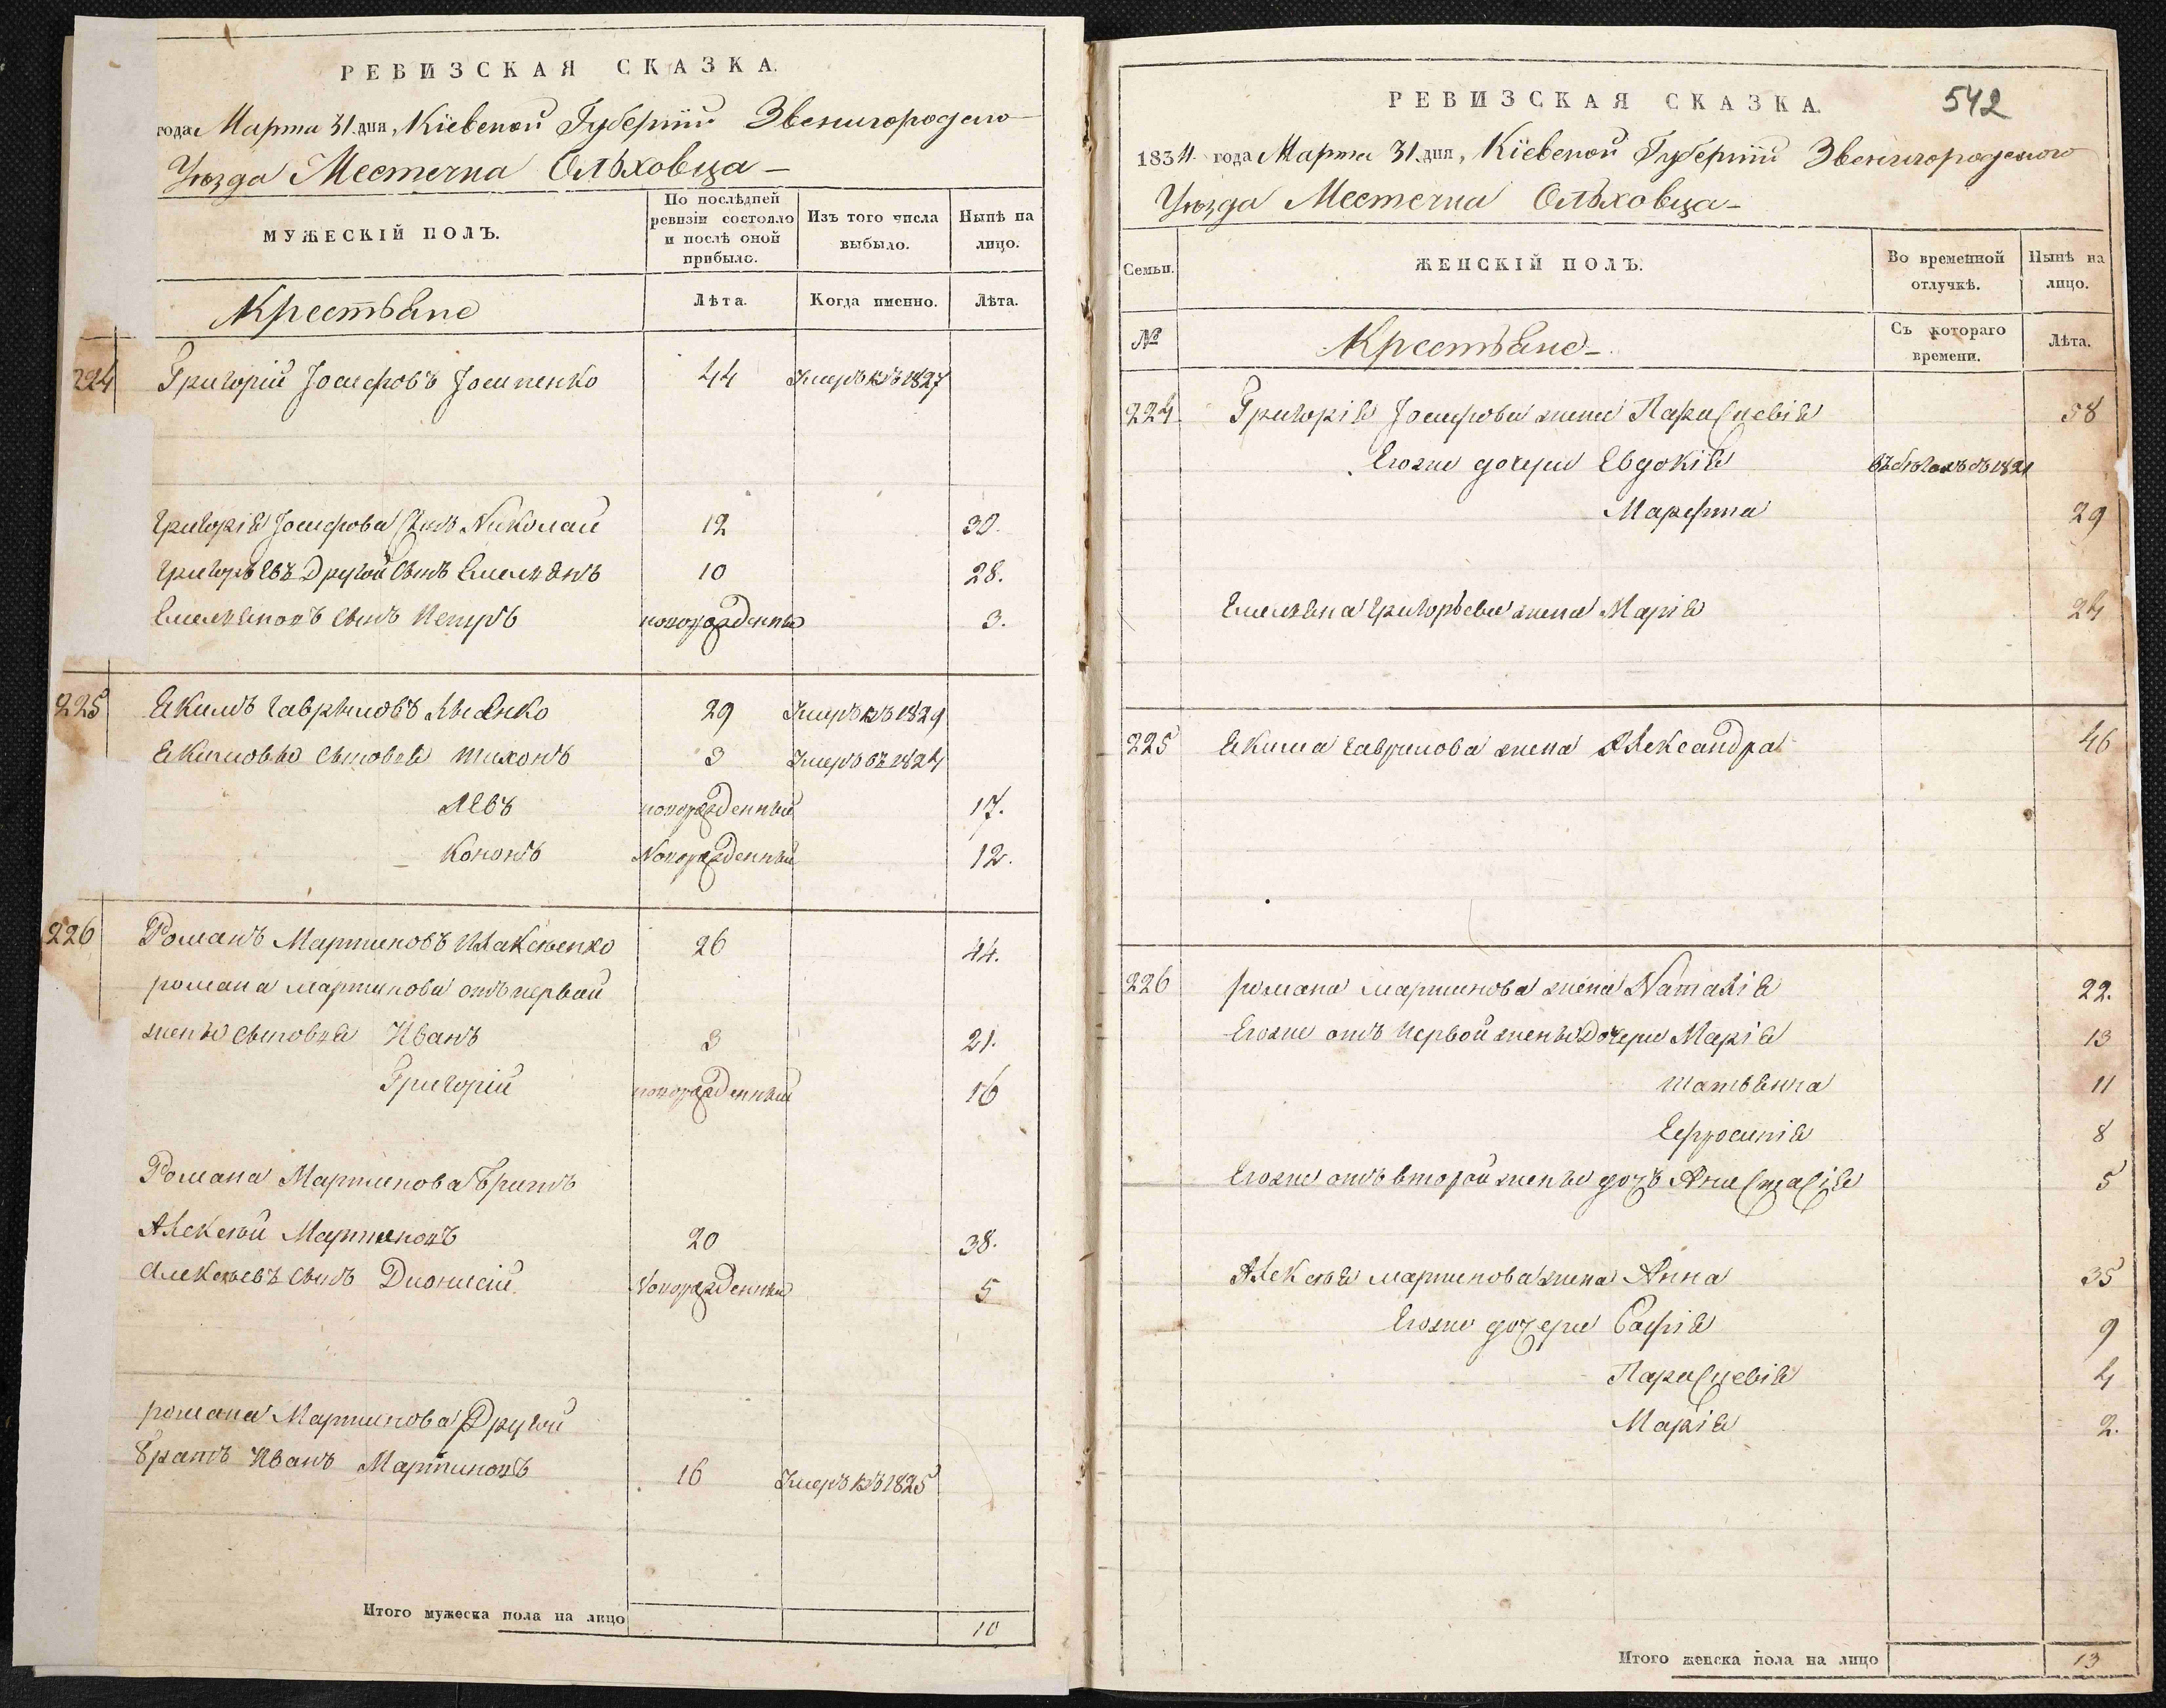 РЕВИЗСКАЯ СКАЗКА.
года Марта 31 дня, Кіевской Губерніи Звенигородского
Уѣзда Местечка Ольховца
МУЖЕСКІЙ ПОЛЪ.
По послѣдней ревизіи состояло и послѣ оной прибыло.
Изъ того числа выбыло.
Нынѣ на лицо.
Крестьяне
Лѣта.
Когда именно.
Лѣта.
224 Григорій Іосифовъ Іосипенко 44 Умеръ въ 1827
Григорія Іосифова Сынъ Николай 12 30.
Григорьевъ Другой Сынъ Емельянъ 10 28.
Емельяновъ Сынъ Петръ новорожденны 3.
225 Якимъ Гавриловъ 29 Умеръ въ 1829
Якимовы Сыновья Тихонъ 3 Умеръ въ 1824
Левъ новорожденный 17.
Кононъ Новорожденный 12.
226 Романъ Мартиновъ Максименко 26 44.
романа мартинова отъ первой
жены Сыновья Иванъ 3 21.
Григорій новорожденный 16
Романа Мартинова братъ
Алексѣй Мартиновъ 20 38.
Алексѣевъ Сынъ Дионисій. Новорожденны 5
романа Мартинова Другой
братъ Иванъ Мартиновъ 16 Умеръ въ 1825
Итого мужеска пола на лицо 10
542
РЕВИЗСКАЯ СКАЗКА.
1834 года Марта 31 дня, Кіевской Губерніи Звенигородского
Уѣзда Местечка Ольховца
Семьи.
ЖЕНСКІЙ ПОЛЪ.
Во временной отлучкѣ.
Нынѣ на лицо.
№
Крестьяне
Съ котораго времени.
Лѣта.
224 Григорія Іосифова жена Параскевія 58
Егоже дочери Евдокія въ бѣгахъ съ 1821
Марфта 29
Емельяна Григорьева жена Марія 24
225 Якима Гаврилова жена Александра 46
226 романа мартинова жена Наталія 22.
Егоже отъ первой жены Дочери Марія 13
татьянна 11
Ефросинія 8
Егоже отъ второй жены дочь Анастасія 5
Алексѣя мартинова жена Анна 35
Егоже дочери Софія 9
Параскевія 4
Марія 2.
Итого женска пола на лицо 13